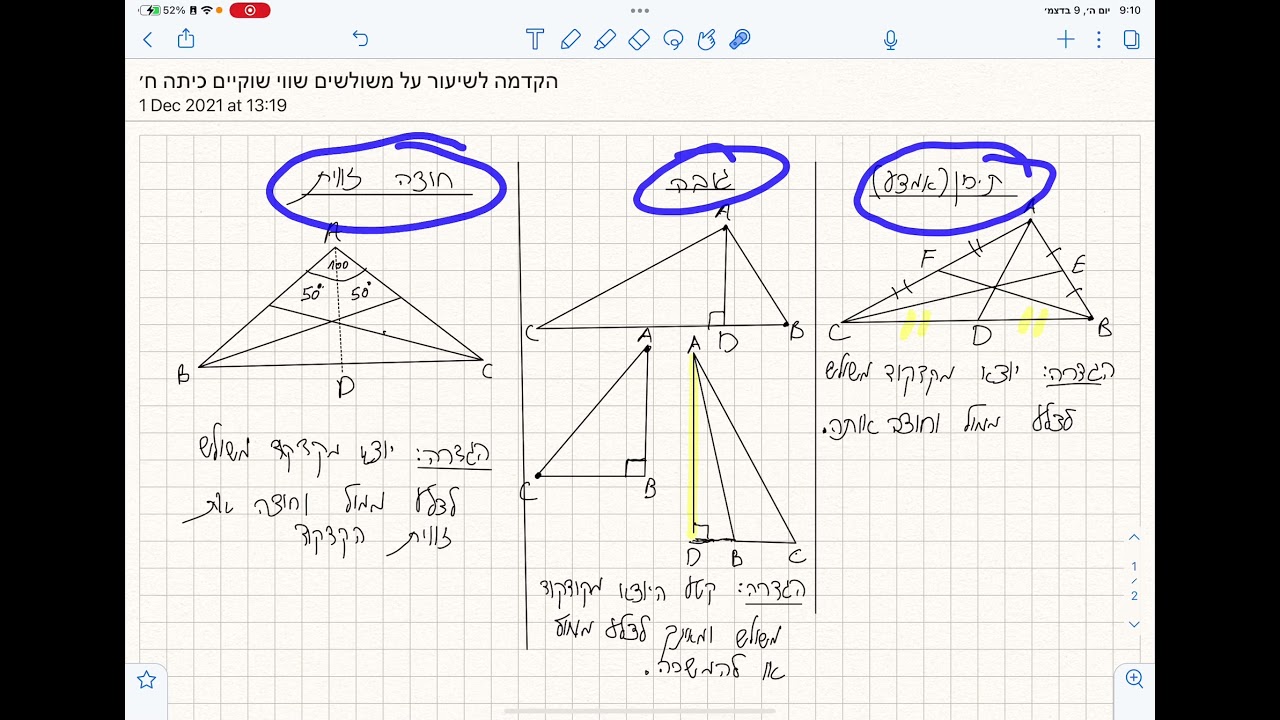 52%
9:10 יום ה׳, 9 בדצמ׳
הקדמה לשיעור על משולשים שווי שוקיים כיתה ח׳
1 Dec 2021 at 13:19
תיכון (אמצע)
A
F
E
C
D
B
הגדרה: יוצא מקדקוד משולש
לצלע ממול וחוצה אותה.
גובה
A
C
D
B
A
C
B
A
D
B
C
הגדרה: קטע היוצא מקודקוד
משולש ומאונך לצלע ממול
או להמשכה.
חוצה זווית
A
100
50° 50°
B
C
D
הגדרה: יוצא מקדקוד משולש
לצלע ממול וחוצה את
זווית הקדקוד
1
/
2